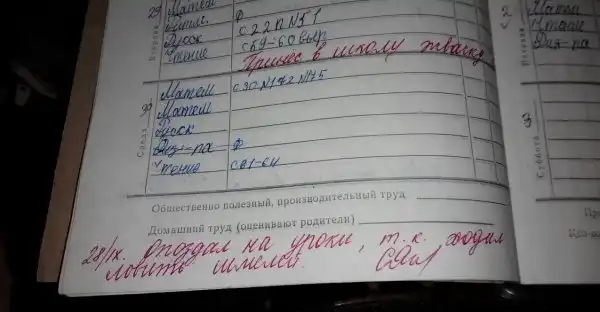 29
Матем
Физк.
Русск
Чтение
ф
с 22 п N51
с 59-60 выр
Принёс в школу жвачку
Вторник
30
Матем
Матем
Русск
Физ-ра
Чтение
с 30 N1 72 N75
ф
с 61-64
Среда
Общественно полезный, производительный труд
Домашний труд (оценивают родители)
28/IX. Опоздал на уроки, т. к. ходил
ловить шмелей.
2
Матем
Чтение
Физ-ра
Пятница
3
Суббота